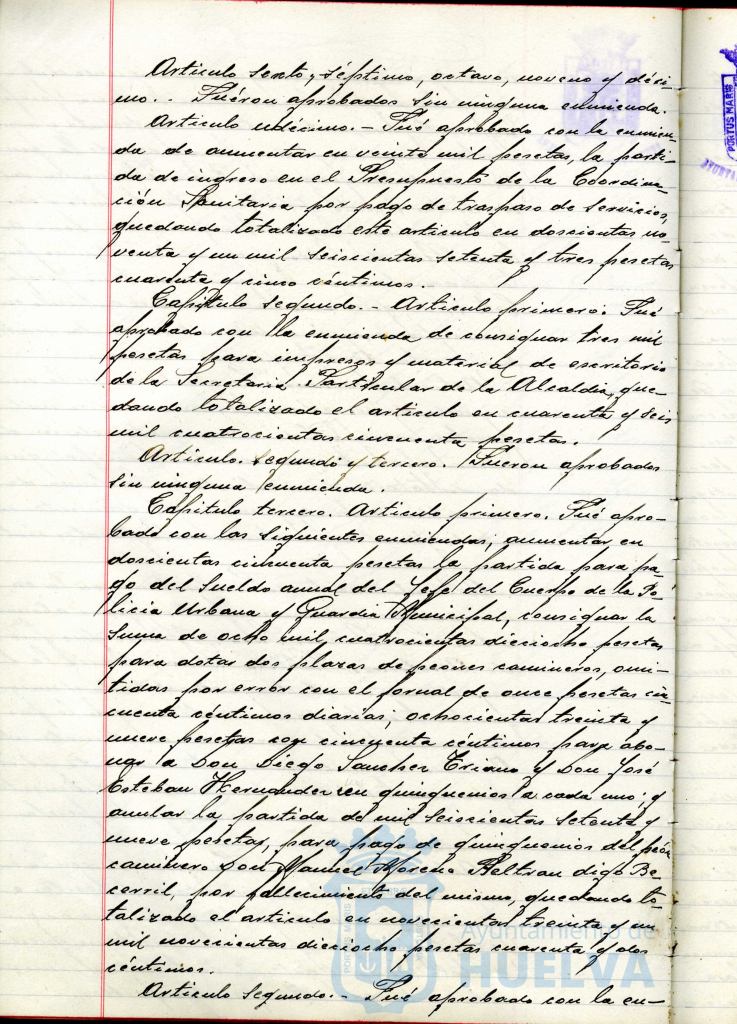 Articulo sexto, séptimo, octavo, noveno y déci-
mo.- Fuéron aprobados sin ninguna enmienda.
Articulo undécimo.- Fué aprobado con la enmien-
da de aumentar en veinte mil pesetas, la parti-
da de ingreso en el Presupuesto de la Coordina-
ción Sanitaria por pago de traspaso de servicios,
quedando totalizado este articulo en doscientas no-
venta y un mil seiscientas setenta y tres pesetas
cuarenta y cinco céntimos.
Capitulo segundo.- Articulo primero: Fué
aprobado con la enmienda de consignar tres mil
pesetas para impresos y material de escritorio
de la Secretaria Particular de la Alcaldia, que-
dando totalizado el articulo en cuarenta y seis
mil cuatrocientas cincuenta pesetas.
Articulo segundo y tercero. Fueron aprobados
sin ninguna enmienda.
Capitulo tercero. Articulo primero. Fué apro-
bado con las siguientes enmiendas; aumentar en
doscientas cincuenta pesetas la partida para pa-
go del sueldo anual del Jefe del Cuerpo de la Po-
licia Urbana y Guardia Municipal, consignar la
suma de ocho mil cuatrocientas dieciocho pesetas
para dotar dos plazas de peones camineros, omi-
tidas por error con el jornal de once pesetas cin-
cuenta céntimos diarias; ochocientas treinta y
nueve pesetas con cincuenta céntimos para abo-
nar a Don Diego Sanchez Triano y Don José
Esteban Hernandez en quinquenios a cada uno; y
anular la partida de mil seiscientas setenta y
nueve pesetas, para pago de quinquenios del peón
caminero Don Manuel Moreno Beltran digo Be-
cerril, por fallecimiento del mismo, quedando to-
talizado el articulo en novecientas treinta y un
mil novecientas dieciocho pesetas cuarenta y dos
céntimos.
Articulo segundo.- Fué aprobado con la en-
Ayuntamiento de
HUELVA
PORTUS MARIS